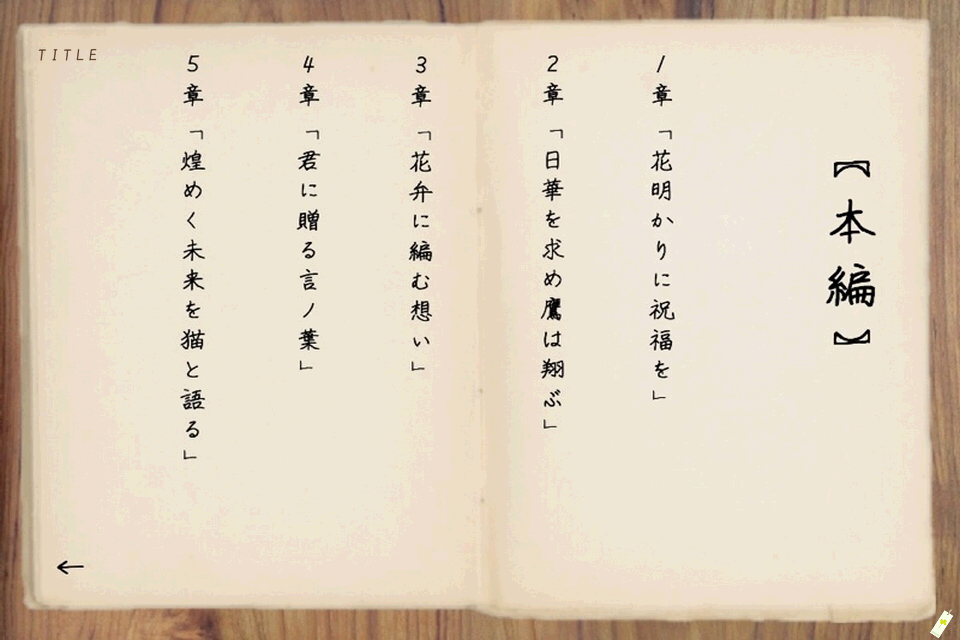 TITLE
【本編】
1章「花明かりに祝福を」
2章「日華を求め鷹は翔ぶ」
3章「花弁に編む想い」
4章「君に贈る言ノ葉」
5章「煌めく未来を猫と語る」
←